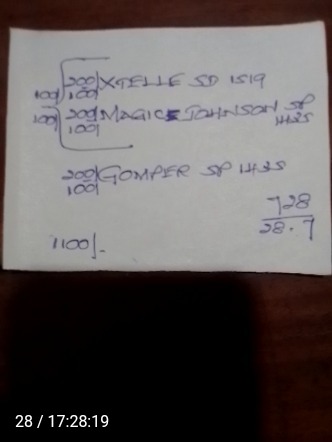 200| XTELLE SP 1519
100| 100|
200| MAGIC JOHNSON SP
100| 100| 1435
200| GOMPER SP 1435
100|
728
28.7
1100/-
28 / 17:28:19